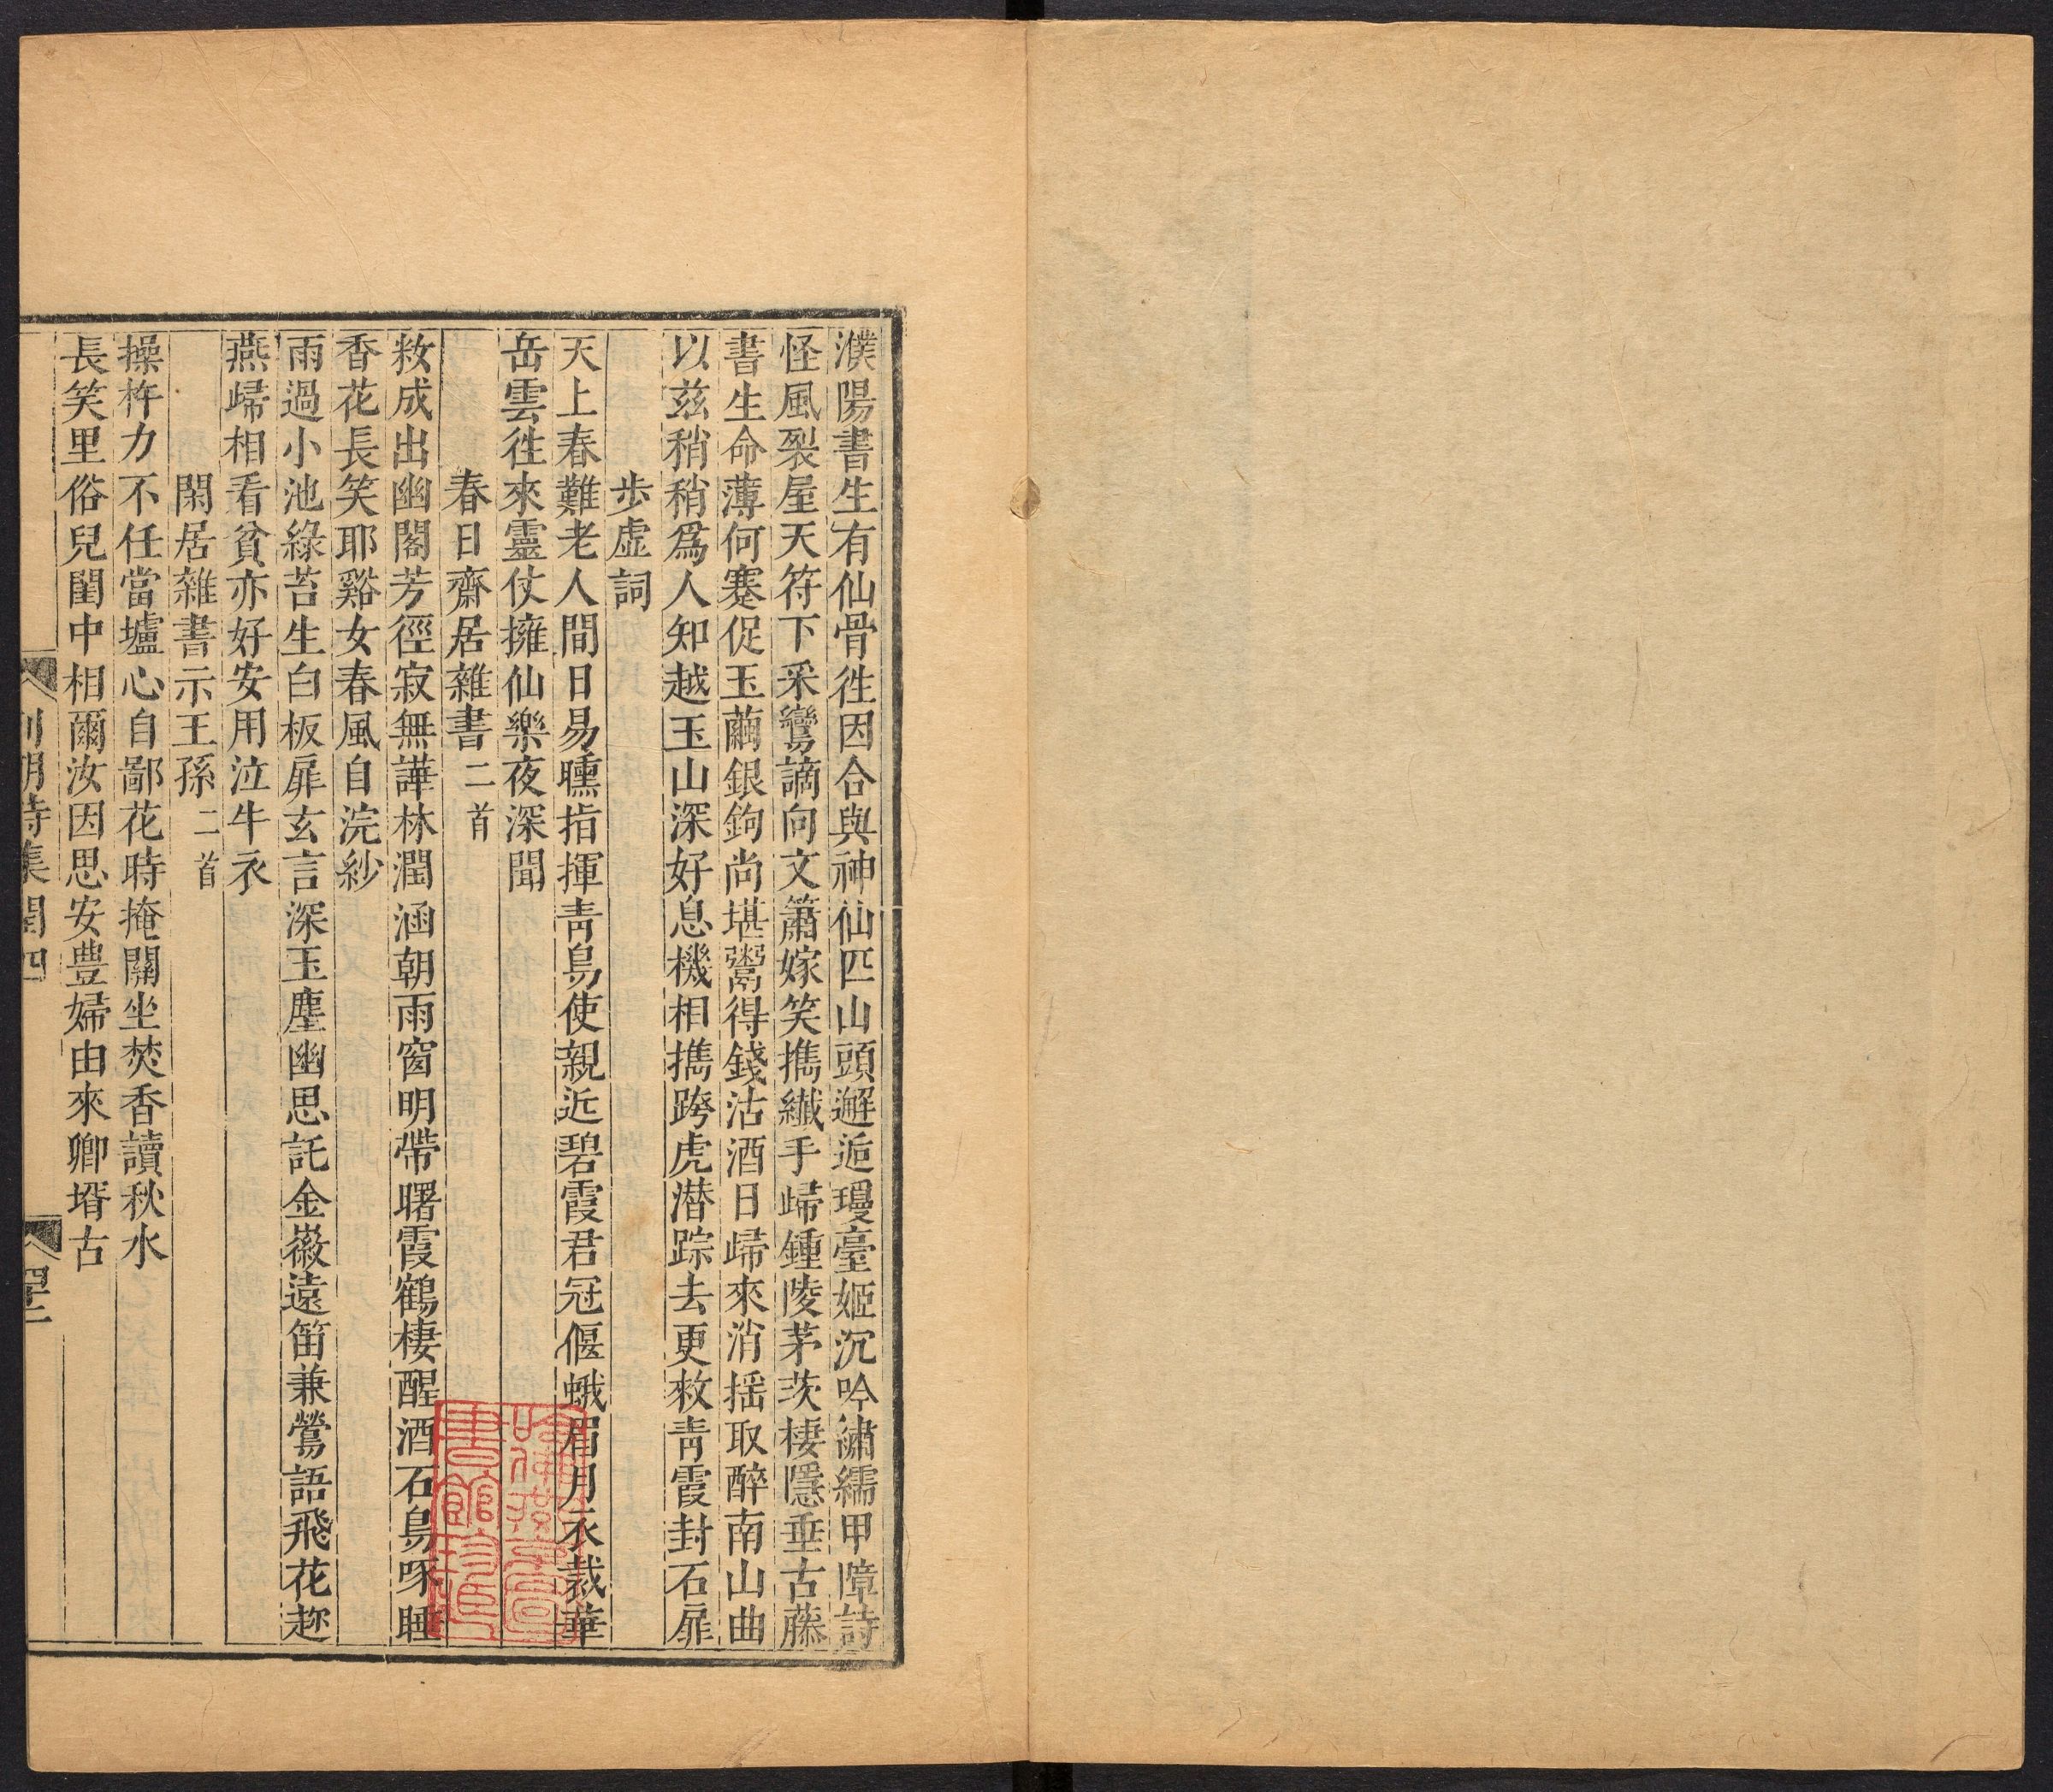 濮陽書生有仙骨徃因合與神仙匹山頭邂逅瓊臺姬沉吟繡繻甲障詩
怪風裂屋天符下釆鸞謫向文簫嫁笑攜纎手歸鍾陵茅茨棲隱垂古藤
書生命薄何蹇促玉繭銀鉤尚堪鬻得錢沽酒日歸來消揺取醉南山曲
以兹稍稍爲人知越玉山深好息機相攜跨虎潜踪去更敕靑霞封石扉
步虛詞
天上春難老人間日易曛指揮靑鳥使親近碧霞君冠偃蛾眉月衣裁華
岳雲徃來靈仗擁仙樂夜深聞
春日齋居雜書二首
敉成出幽閣芳徑寂無譁林潤涵朝雨窗明帶曙霞鶴棲醒酒石鳥啄睡
香花長笑耶谿女春風自浣紗
雨過小池綠苔生白板扉玄言深玉麈幽思託金徽遠笛兼鶯語飛花趂
燕歸相看貧亦好安用泣牛衣
閑居雜書示王孫二首
操杵力不任當壚心自鄙花時掩關坐焚香讀秋水
長笑里俗兒閨中相爾汝因思安豊婦由來卿壻古
列朝詩集閏四
四十二
哈佛燕京圖
書館珍藏